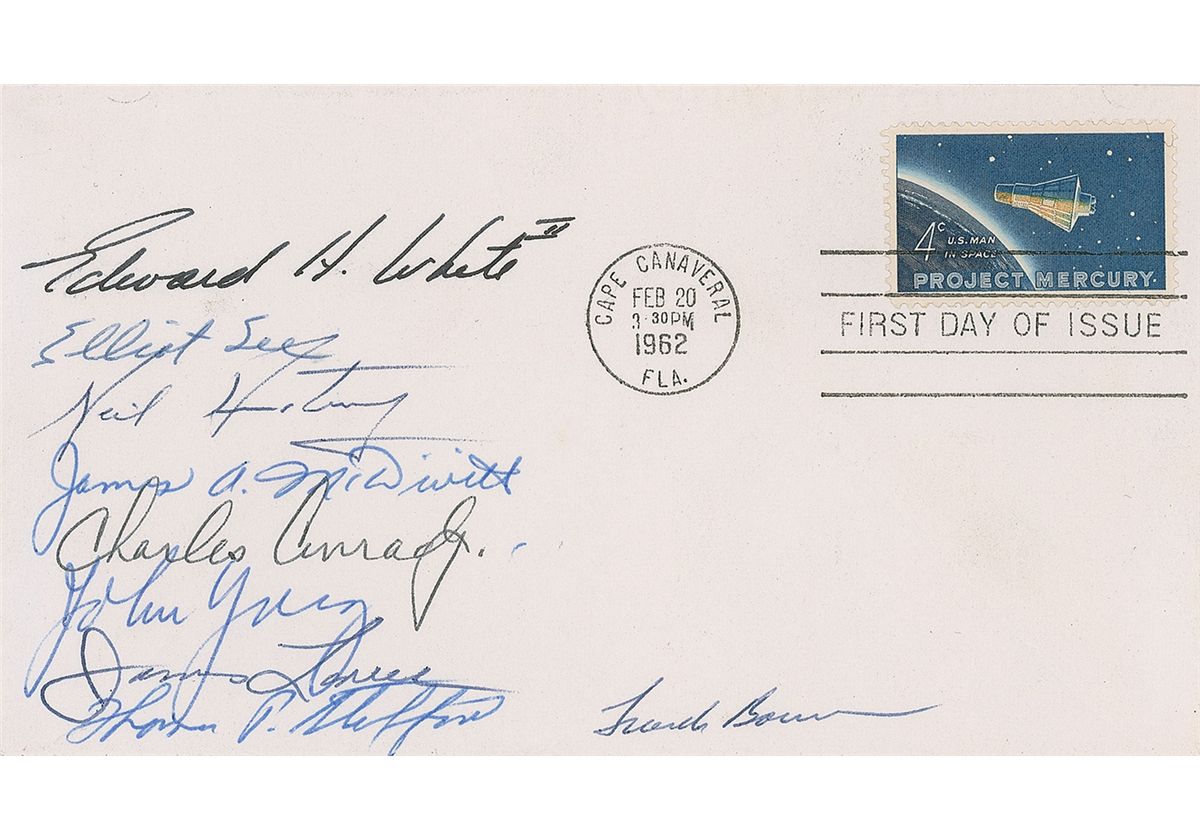 Edward H. White II
Elliot See
Neil Armstrong
James A. McDivitt
Charles Conrad Jr.
John Young
James Lovell
Thomas P. Stafford
Frank Borman
CAPE CANAVERAL
FEB 20
3 30 PM
1962
FLA.
4c U.S. MAN
IN SPACE
PROJECT MERCURY
FIRST DAY OF ISSUE